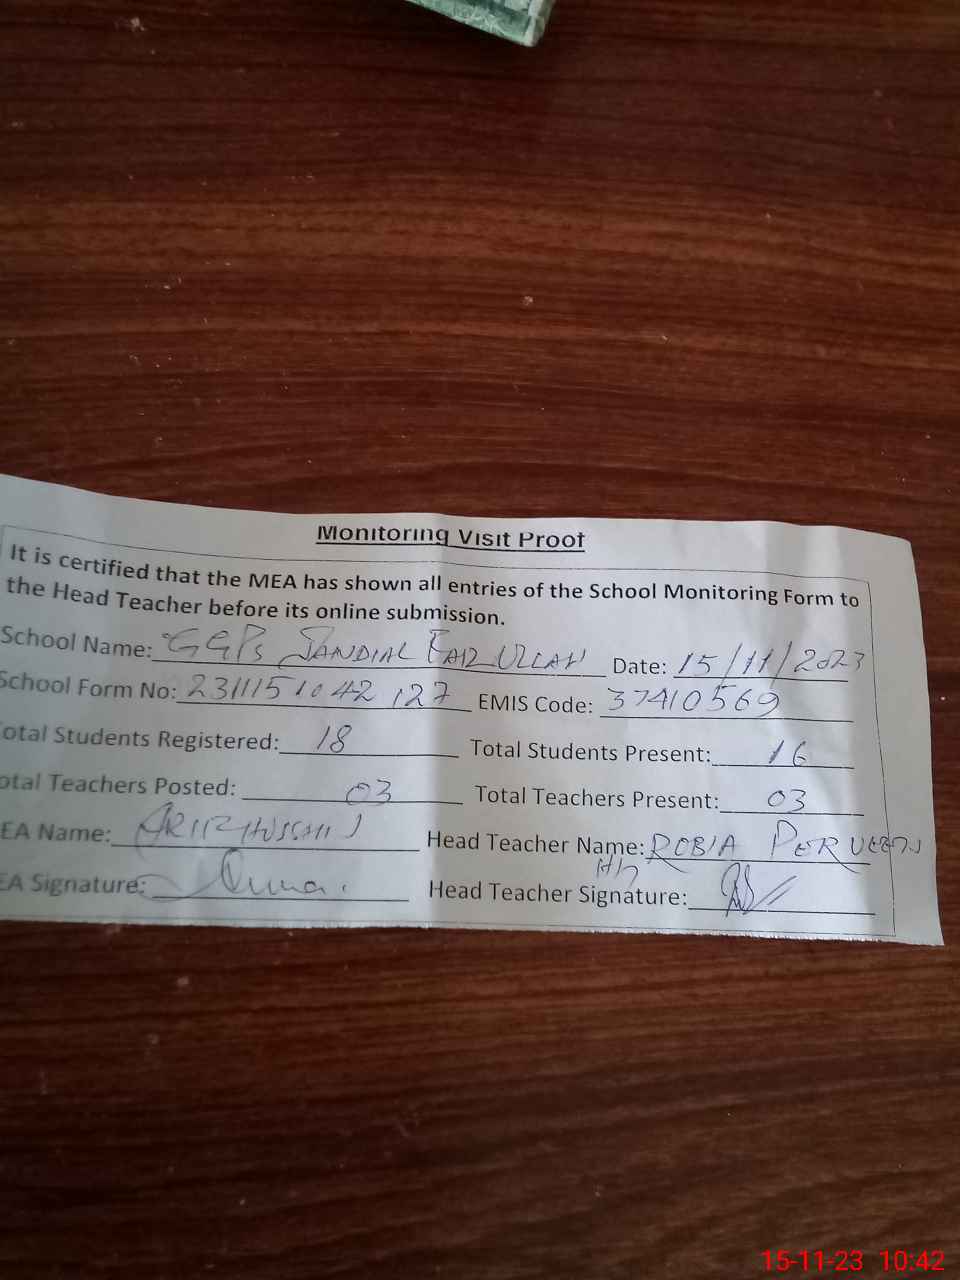 Monitoring Visit Proof
It is certified that the MEA has shown all entries of the School Monitoring Form to
the Head Teacher before its online submission.
School Name: GGPS JANDIAL FAIZ ULLAH Date: 15/11/2023
School Form No: 231115 1042 127 EMIS Code: 37410569
otal Students Registered: 18 Total Students Present: 16
otal Teachers Posted: 03 Total Teachers Present: 03
EA Name: HUSSAIN Head Teacher Name: ROBIA PERVEEN
EA Signature: Head Teacher Signature:
15-11-23 10:42